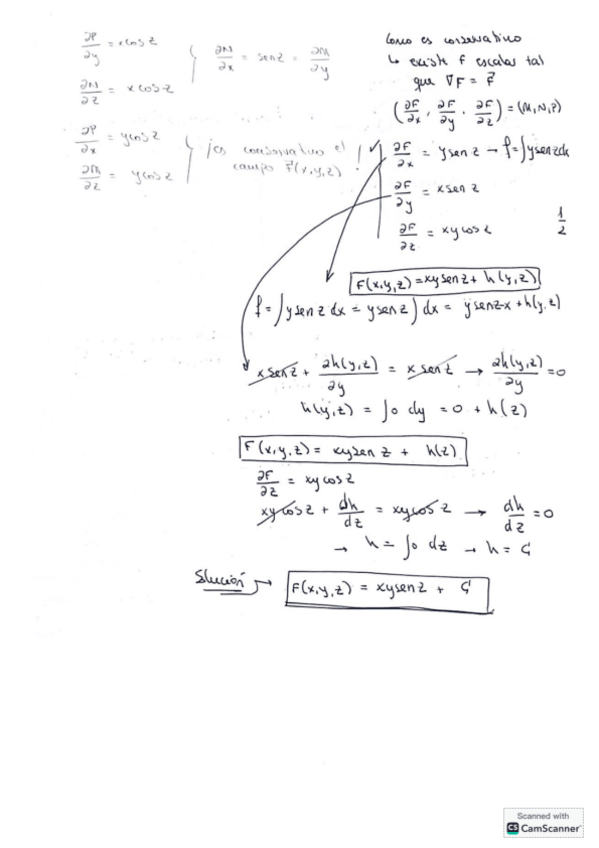 ∂P/∂y = x cos z
∂N/∂z = x cos z
∂N/∂x = sen z = ∂M/∂y
∂P/∂x = y cos z
∂M/∂z = y cos z
¡es conservativo el
campo F⃗(x,y,z) !
Como es conservativo
↳ existe f escalar tal
que ∇F = F⃗
(∂F/∂x , ∂F/∂y , ∂F/∂z) = (M,N,P)
∂F/∂x = y sen z → f = ∫y sen z dx
∂F/∂y = x sen z
∂F/∂z = xy cos z
1/2
F(x,y,z) = xy sen z + h(y,z)
f = ∫y sen z dx = y sen z ∫dx = y sen z·x + h(y,z)
x sen z + ∂h(y,z)/∂y = x sen z → ∂h(y,z)/∂y = 0
h(y,z) = ∫0 dy = 0 + h(z)
F(x,y,z) = xy sen z + h(z)
∂F/∂z = xy cos z
xy cos z + dh/dz = xy cos z → dh/dz = 0
→ h = ∫0 dz → h = C
Solución → F(x,y,z) = xy sen z + C
Scanned with
CS CamScanner